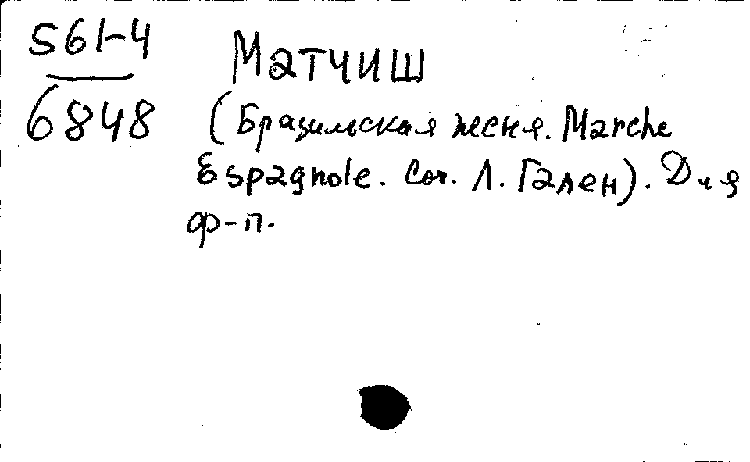 561-4
6848
Матчиш
(Бразильская песня. Marche
Espagnole. Соч. Л. Гален). Для
ф-п.